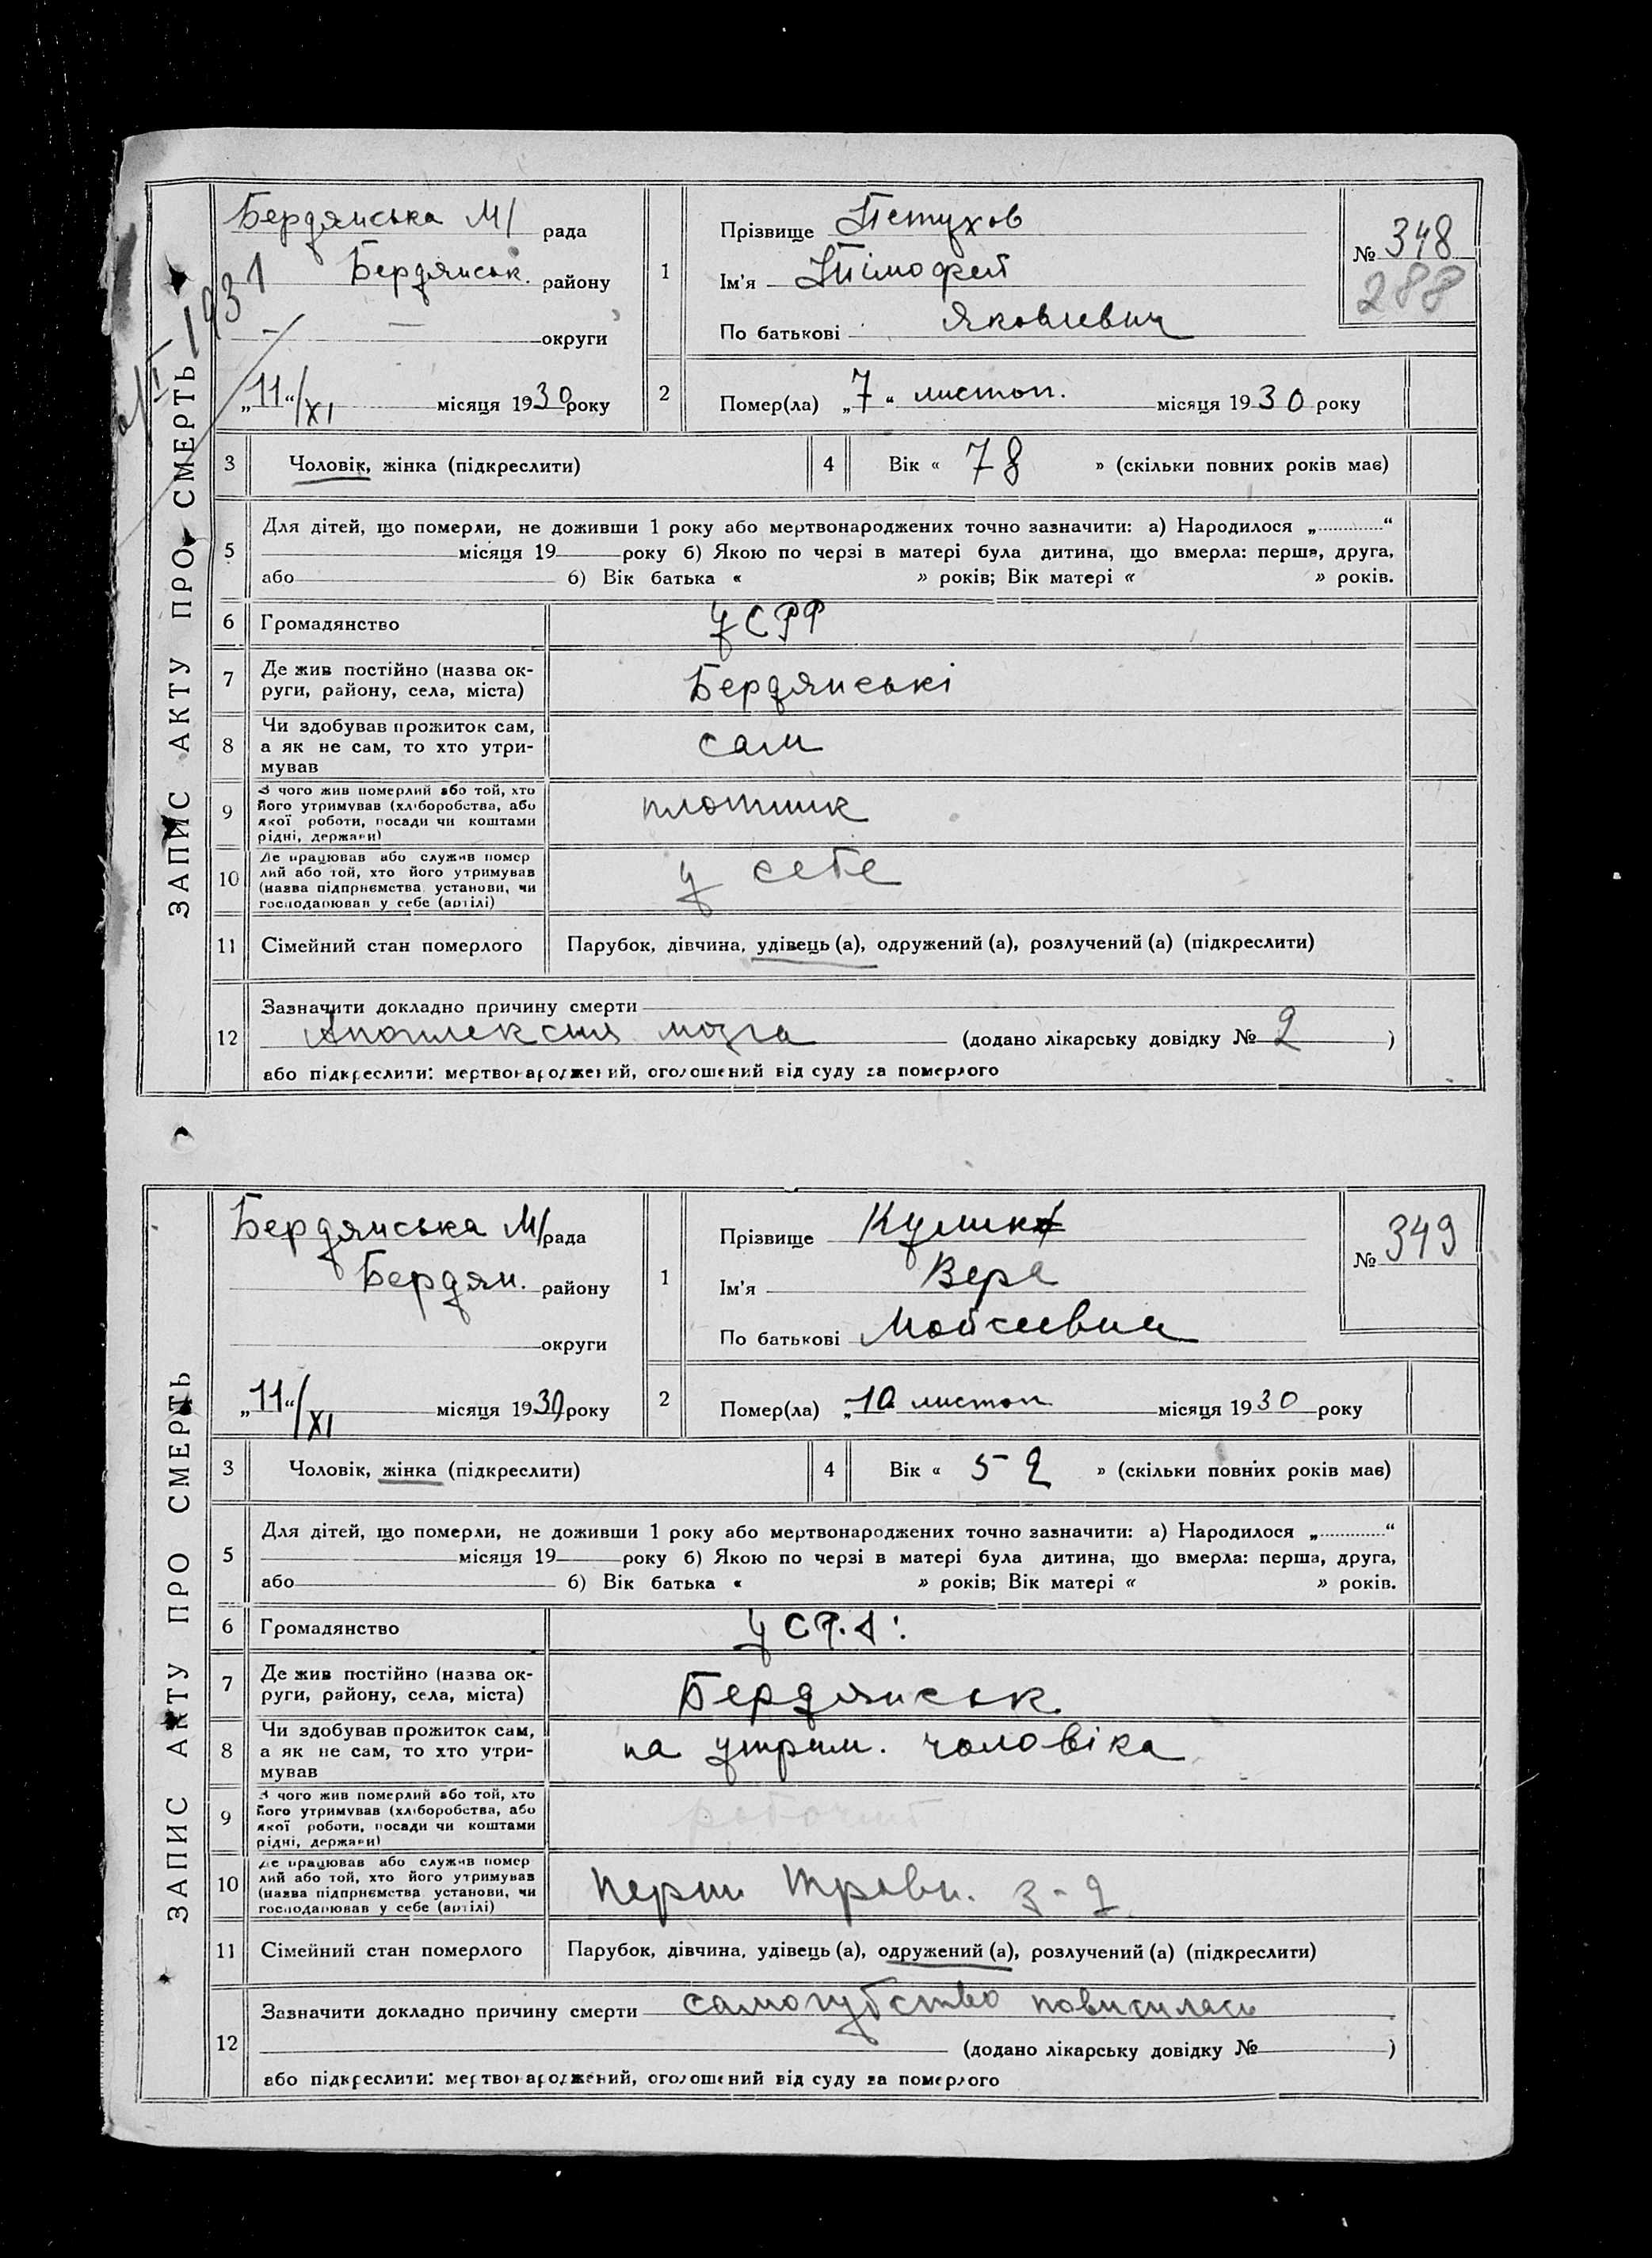 ЗАПИС АКТУ ПРО СМЕРТЬ
1931
Бердянська М/ рада
Бердянськ. району
округи
„11“/XI місяця 1930 року
1
Прізвище Петухов
Ім'я Тімофей
По батькові Яковлевич
№ 348
288
2
Помер(ла) „7“ листоп. місяця 1930 року
3 Чоловік, жінка (підкреслити)
4 Вік « 78 » (скільки повних років має)
5 Для дітей, що померли, не доживши 1 року або мертвонароджених точно зазначити: а) Народилося „ “
місяця 19 року б) Якою по черзі в матері була дитина, що вмерла: перша, друга,
або б) Вік батька « » років; Вік матері « » років.
6 Громадянство УСРР
7 Де жив постійно (назва ок-
руги, району, села, міста) Бердянські
8 Чи здобував прожиток сам,
а як не сам, то хто утри- сам
мував
9 З чого жив померлий або той, хто
його утримував (хліборобства, або плотник
якої роботи, посади чи коштами
рідні, держави)
10 Де працював або служив помер
лий або той, хто його утримував у себе
(назва підприємства установи, чи
господарював у себе (артілі)
11 Сімейний стан померлого Парубок, дівчина, удівець (а), одружений (а), розлучений (а) (підкреслити)
12 Зазначити докладно причину смерти
Апоплексия мозга (додано лікарську довідку № 2 )
або підкреслити: мертвонароджений, оголошений від суду за померлого
ЗАПИС АКТУ ПРО СМЕРТЬ
Бердянська М/ рада
Бердян. району
округи
„11“/XI місяця 1930 року
1
Прізвище
Ім'я Вера
По батькові Мойсеевна
№ 349
2
Помер(ла) „10 листоп місяця 1930 року
3 Чоловік, жінка (підкреслити)
4 Вік « 52 » (скільки повних років має)
5 Для дітей, що померли, не доживши 1 року або мертвонароджених точно зазначити: а) Народилося „ “
місяця 19 року б) Якою по черзі в матері була дитина, що вмерла: перша, друга,
або б) Вік батька « » років; Вік матері « » років.
6 Громадянство
7 Де жив постійно (назва ок-
руги, району, села, міста) Бердянськ
8 Чи здобував прожиток сам,
а як не сам, то хто утри- на утрим. чоловіка
мував
9 З чого жив померлий або той, хто
його утримував (хліборобства, або рабочий
якої роботи, посади чи коштами
рідні, держави)
10 Де працював або служив помер
лий або той, хто його утримував Перш Травн. з-д
(назва підприємства установи, чи
господарював у себе (артілі)
11 Сімейний стан померлого Парубок, дівчина, удівець (а), одружений (а), розлучений (а) (підкреслити)
12 Зазначити докладно причину смерти самогубство повисилась
(додано лікарську довідку № )
або підкреслити: мертвонароджений, оголошений від суду за померлого